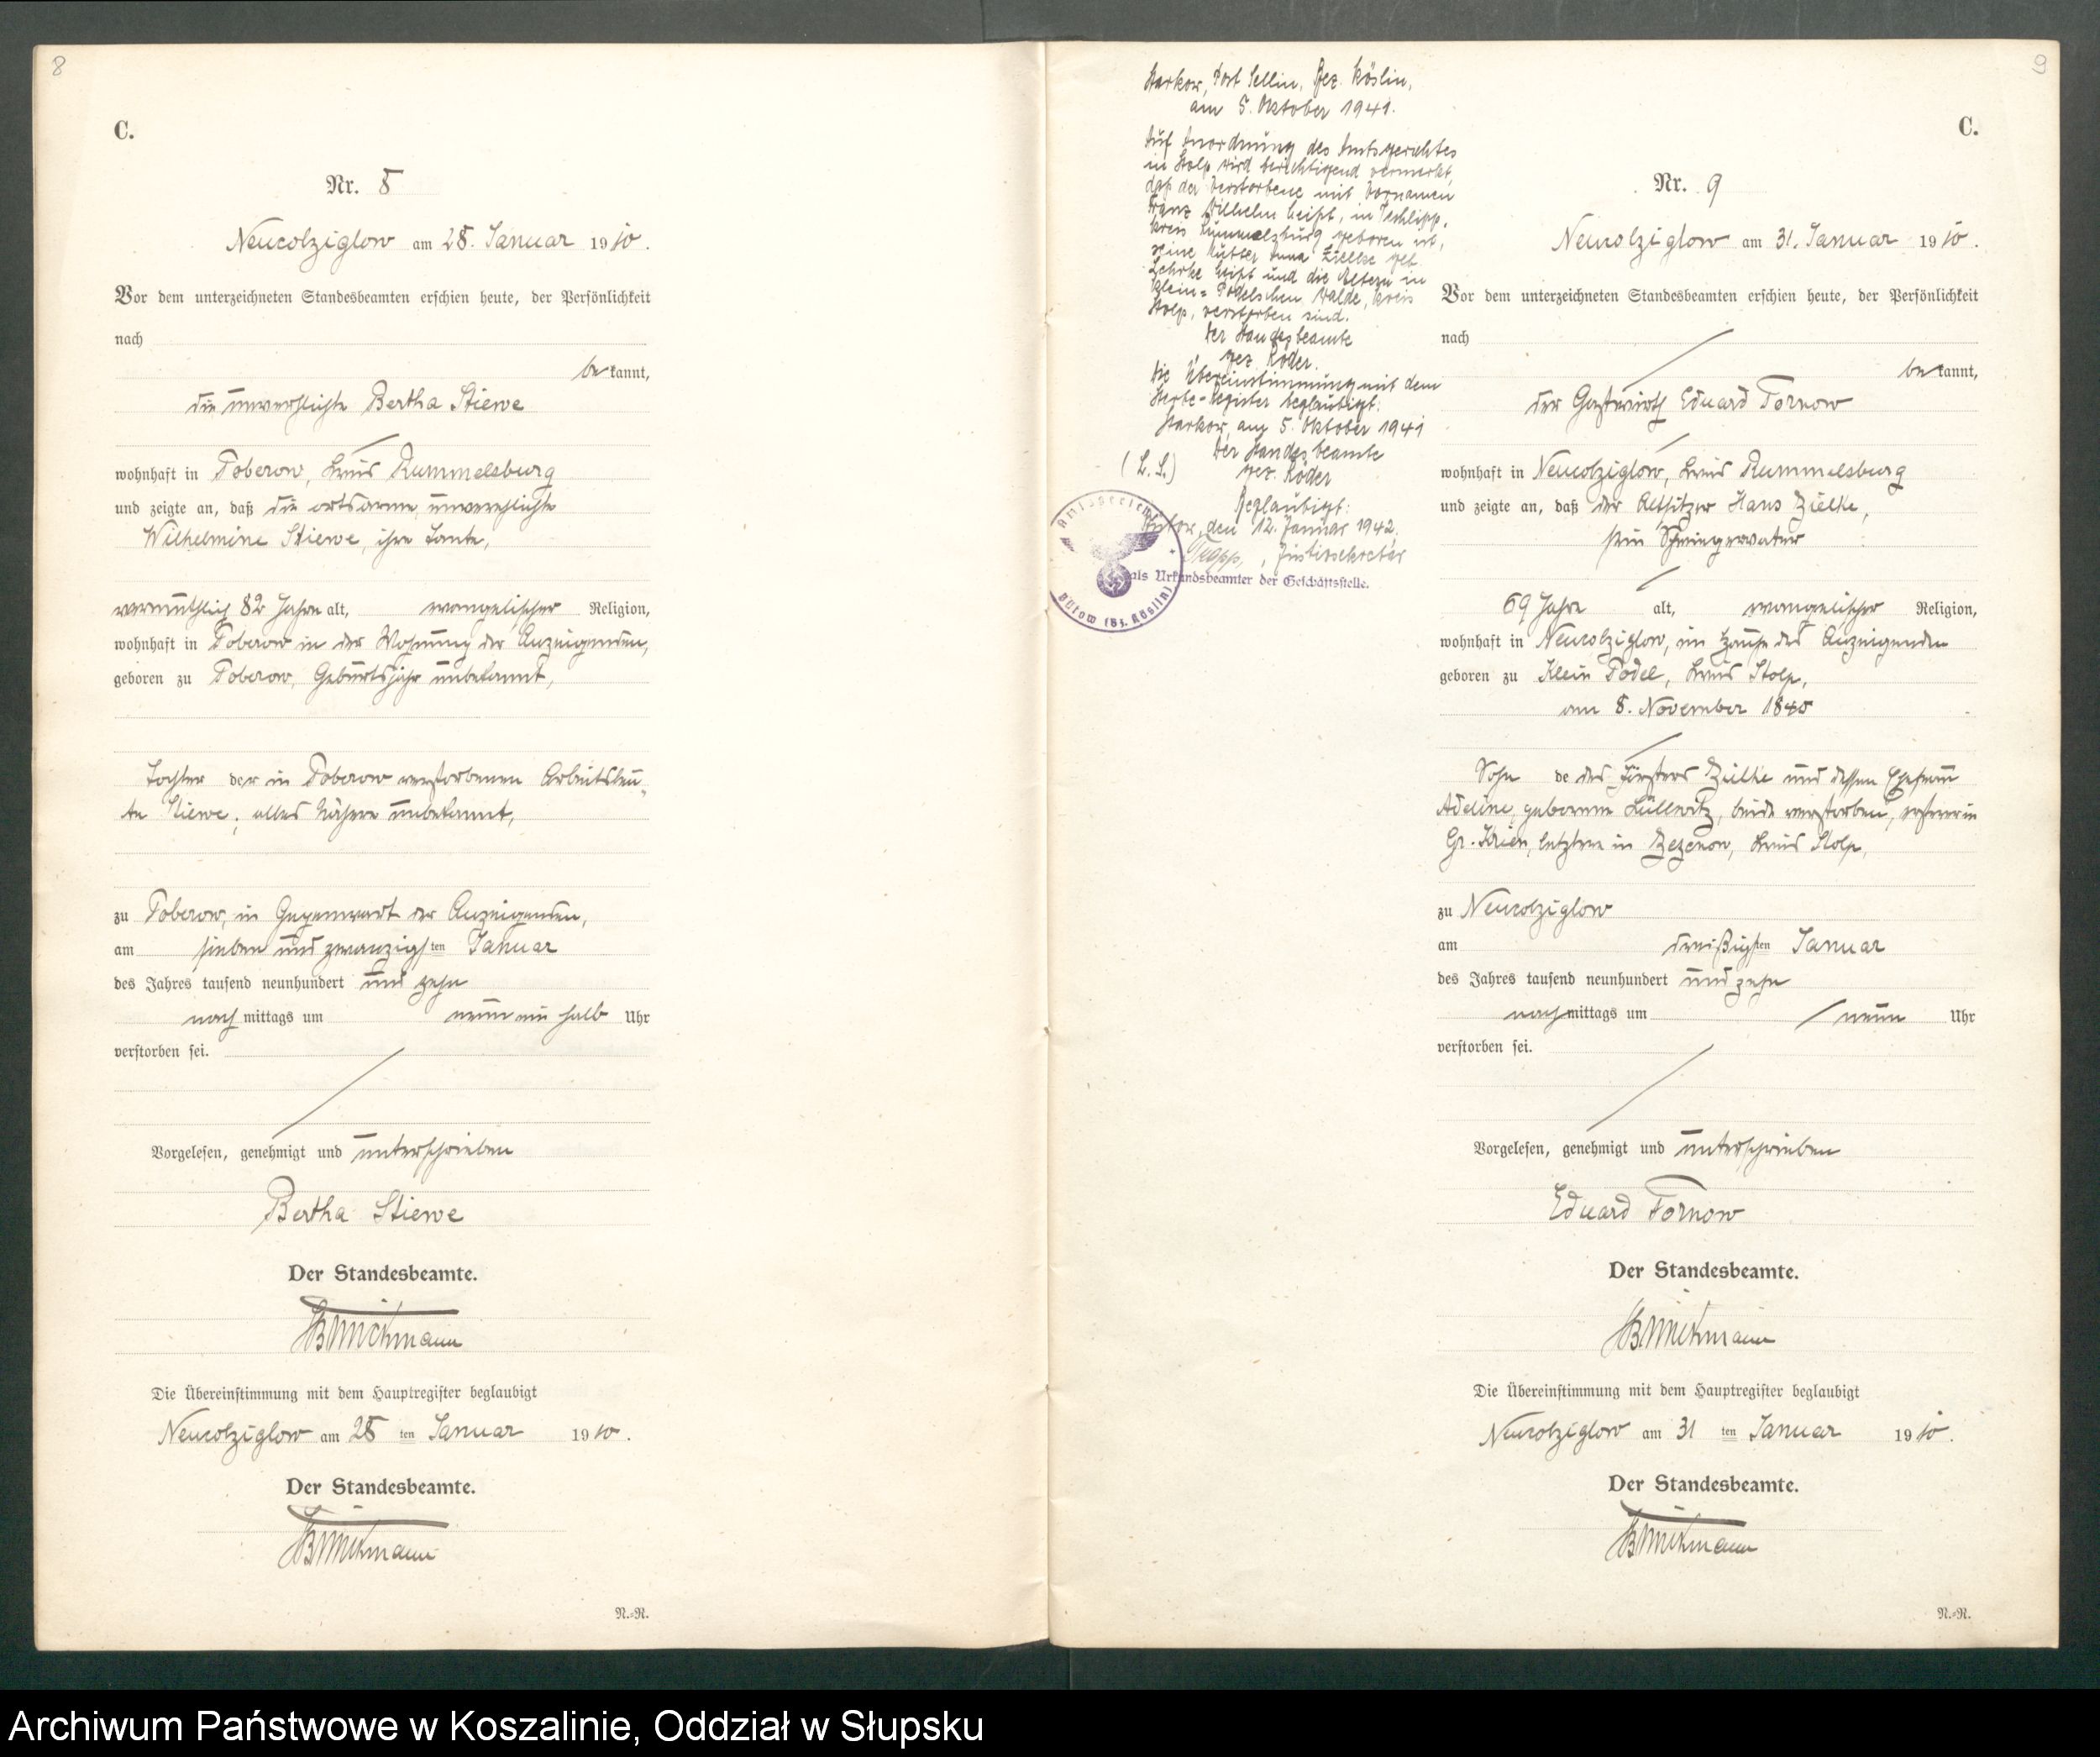 8
C.
Nr. 8
Neucolziglow am 28. Januar 1910.
Vor dem unterzeichneten Standesbeamten erschien heute, der Persönlichkeit
nach
bekannt,
die unverehlichte Bertha Stiewe
wohnhaft in Poberow, Kreis Rummelsburg
und zeigte an, daß die ortsarme, unverehlichte
Wilhelmine Stiewe, ihre Tante,
vermuthlich 82 Jahre alt, evangelischer Religion,
wohnhaft in Poberow in der Wohnung der Anzeigenden,
geboren zu Poberow, Geburtsjahr unbekannt,
Tochter der in Poberow verstorbenen Arbeitsleu-
te Stiewe, alles Nähere unbekannt,
zu Poberow, in Gegenwart der Anzeigenden,
am sieben und zwanzigsten Januar
des Jahres tausend neunhundert und zehn
nachmittags um neun ein halb Uhr
verstorben sei.
Vorgelesen, genehmigt und unterschrieben
Bertha Stiewe
Der Standesbeamte.
Die Übereinstimmung mit dem Hauptregister beglaubigt
Neucolziglow am 28 ten Januar 1910.
Der Standesbeamte.
N.-N.
9
Starkow, Post Sellin, Bez. Köslin,
am 5. Oktober 1941.
Auf Anordnung des Amtsgerichtes
in Stolp wird berichtigend vermerkt,
daß der Verstorbene mit Vornamen
Franz Wilhelm heißt, in
Kreis Rummelsburg geboren ist,
seine Mutter Anna Zielke geb.
heißt und die Eltern in
Klein-Podelschen Walde, Kreis
Stolp, verstorben sind.
Der Standesbeamte
gez. Röder.
Die Übereinstimmung mit dem
Sterbe-Register beglaubigt:
Starkow, am 5. Oktober 1941
Der Standesbeamte
(L. S.) gez. Röder
Beglaubigt:
Bütow, den 12. Januar 1942.
, Justizsekretär
als Urkundsbeamter der Geschäftsstelle.
Amtsgericht
Bütow (Bz. Köslin)
C.
Nr. 9
Neucolziglow am 31. Januar 1910.
Vor dem unterzeichneten Standesbeamten erschien heute, der Persönlichkeit
nach
bekannt,
der Gastwirth Eduard Tornow
wohnhaft in Neucolziglow, Kreis Rummelsburg
und zeigte an, daß der Altsitzer Hans Zielke,
sein Schwiegervater
69 Jahre alt, evangelischer Religion,
wohnhaft in Neucolziglow, im Hause des Anzeigenden
geboren zu Klein Podel, Kreis Stolp,
am 8. November 1840
Sohn de des Försters Zielke und dessen Ehefrau
Adeline, geborene Lüllwitz, beide verstorben, ersterer in
Gr. Krien, letztere in Zezenow, Kreis Stolp,
zu Neucolziglow
am dreißigsten Januar
des Jahres tausend neunhundert und zehn
nachmittags um neun Uhr
verstorben sei.
Vorgelesen, genehmigt und unterschrieben
Eduard Tornow
Der Standesbeamte.
Die Übereinstimmung mit dem Hauptregister beglaubigt
Neucolziglow am 31 ten Januar 1910.
Der Standesbeamte.
N.-N.
Archiwum Państwowe w Koszalinie, Oddział w Słupsku